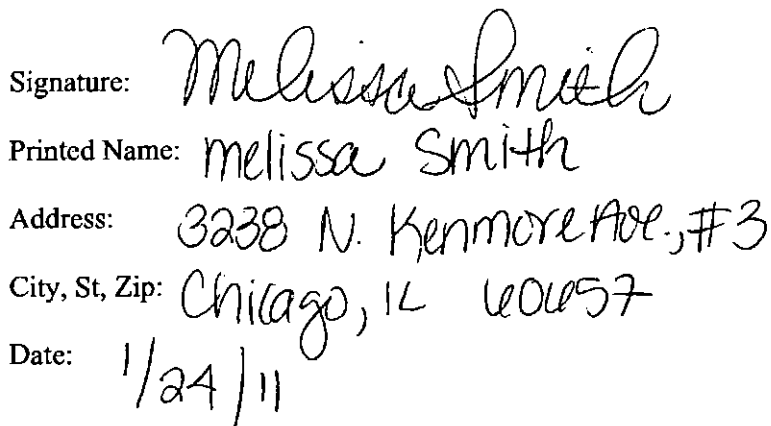 Signature: Melissa Smith
Printed Name: melissa Smith
Address: 3238 N. Kenmore Ave., #3
City, St, Zip: Chicago, IL 60657
Date: 1/24/11